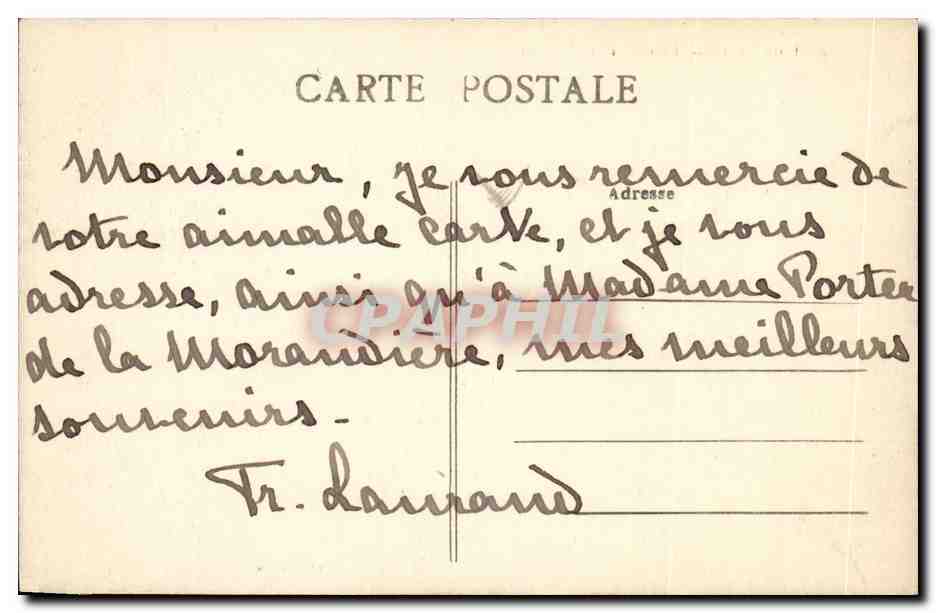 CARTE POSTALE
Monsieur, je vous remercie de
Adresse
votre aimable carte, et je vous
adresse, ainsi qu'à Madame Porter
CPAPHIL
de la Morandière, mes meilleurs
souvenirs.
Fr. Laurand